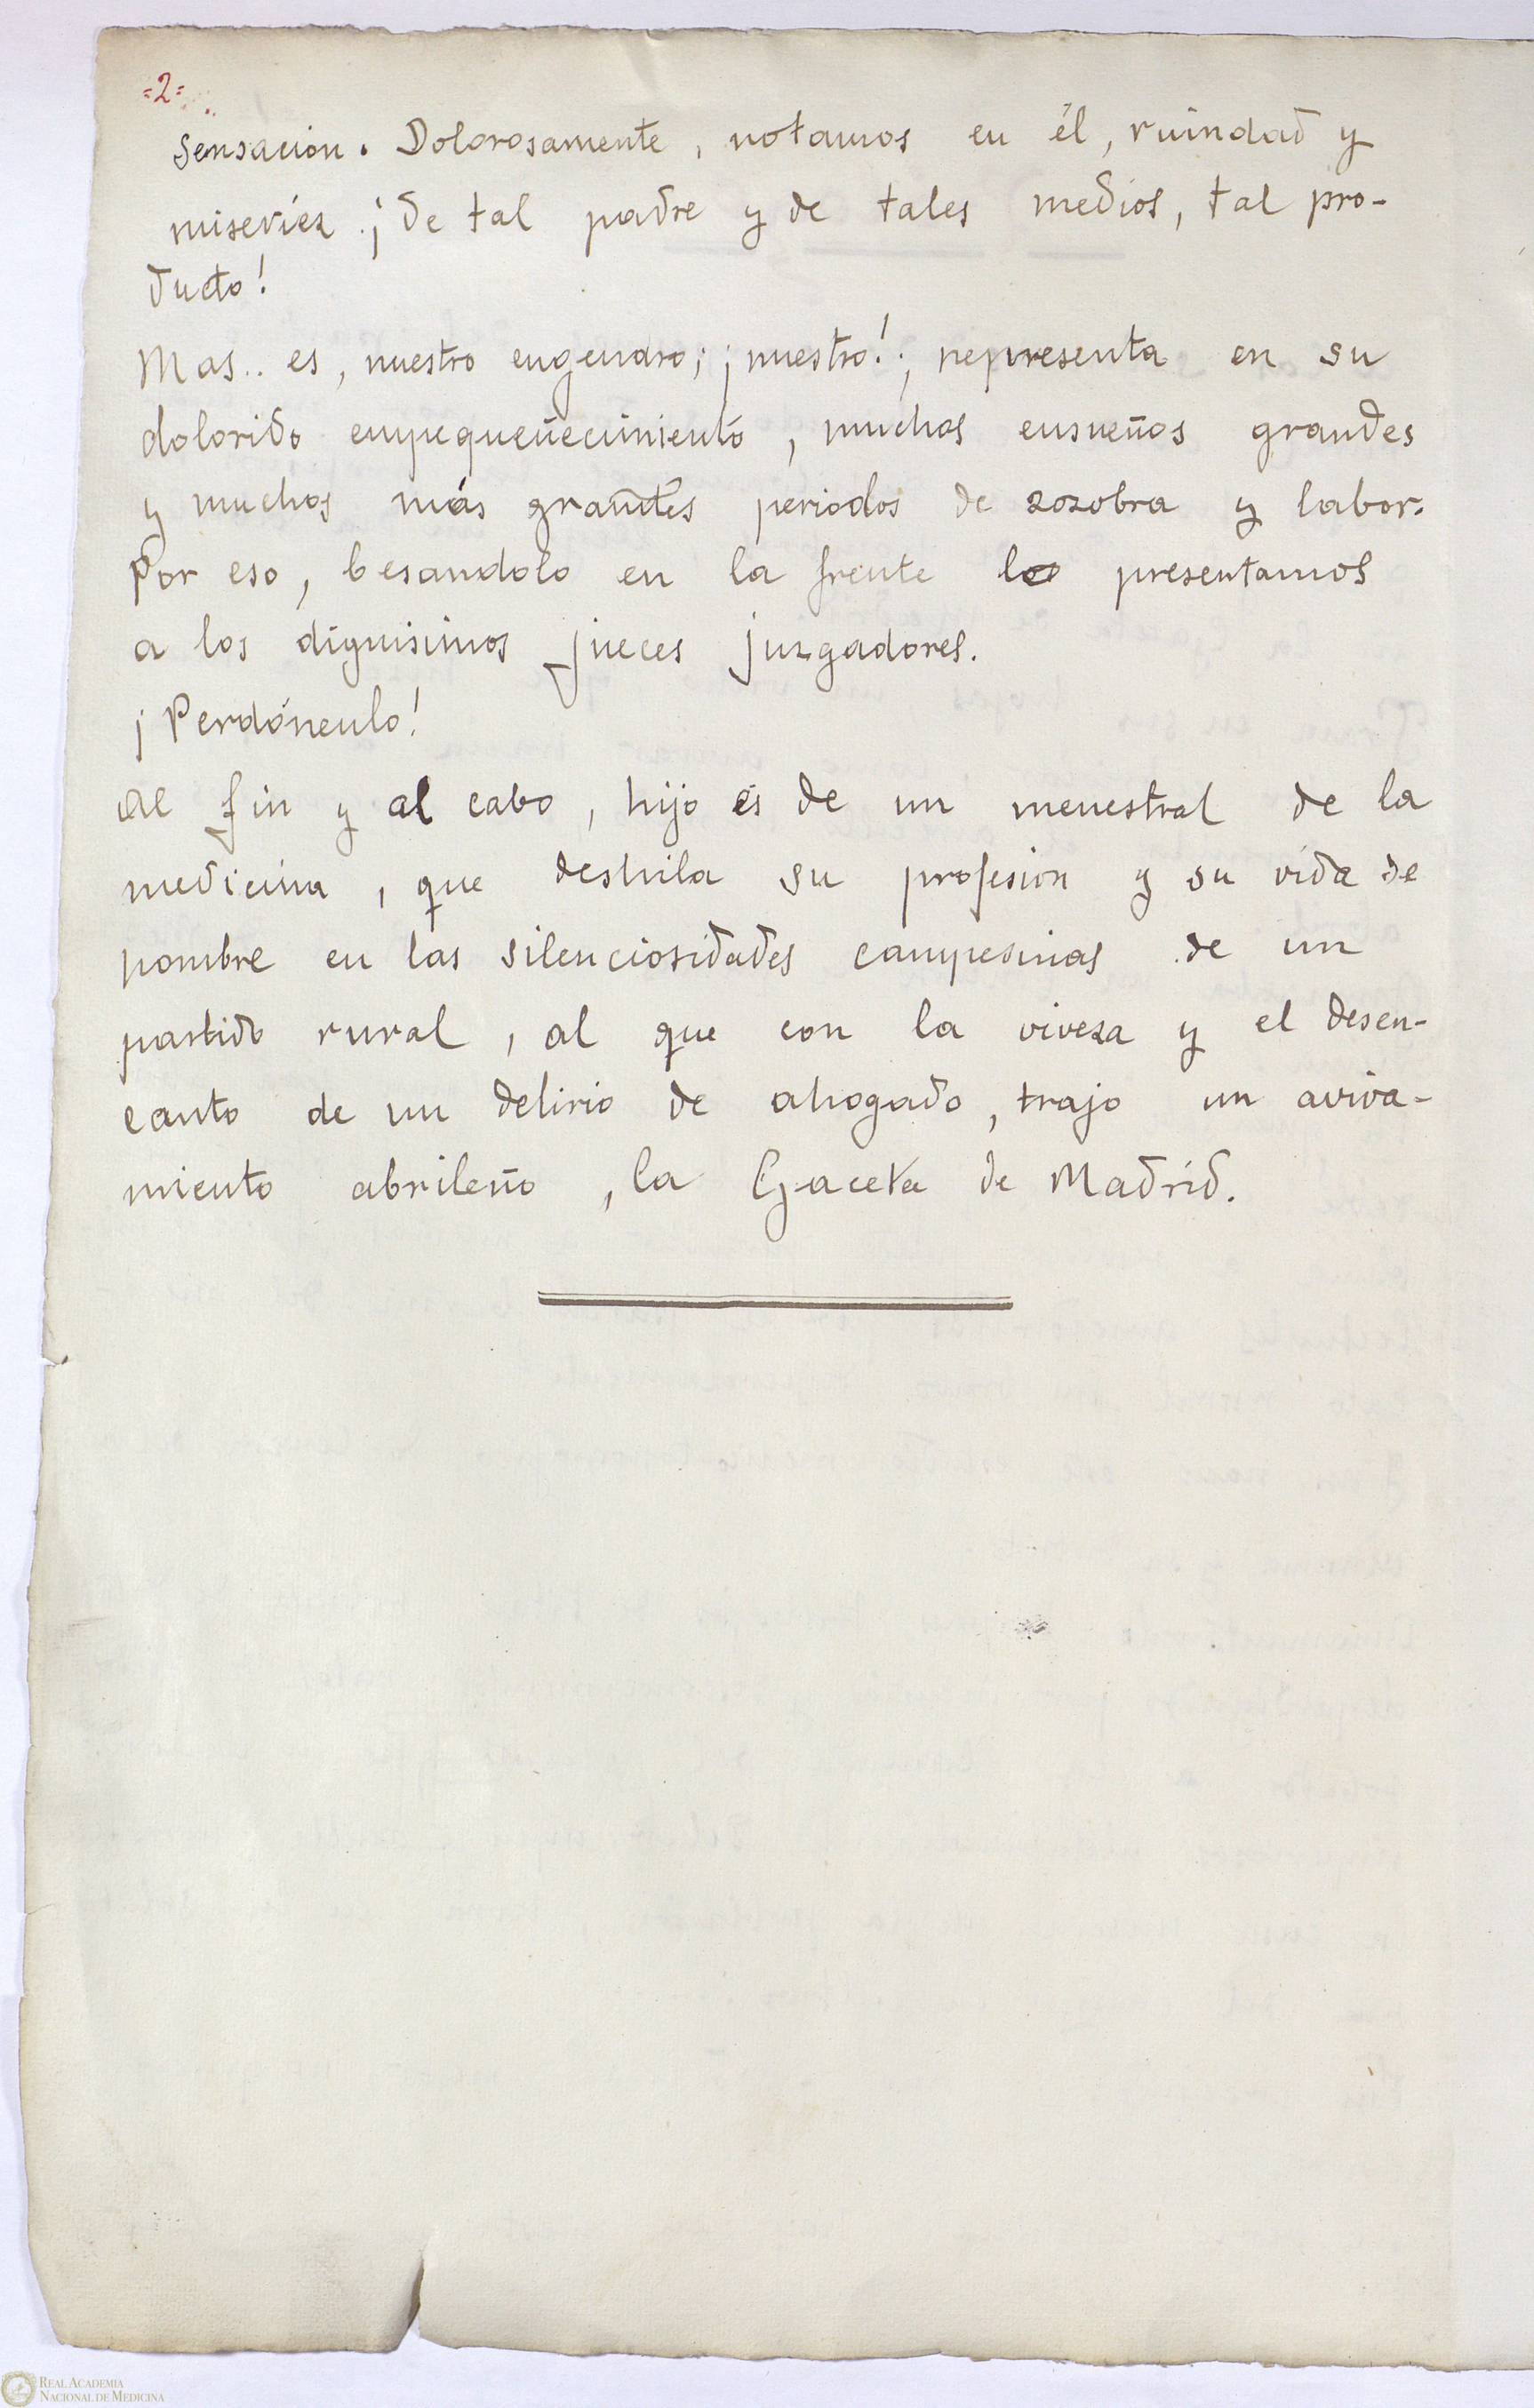 =2=
sensacion. Dolorosamente, notamos en él, ruindad y
miseries. ¡De tal padre y de tales medios, tal pro-
ducto!
Mas.. es, nuestro engendro; ¡nuestro!; representa en su
dolorido empequeñecimiento, muchos ensueños grandes
y muchos más grandes periodos de zozobra y labor.
Por eso, besandolo en la frente lo presentamos
a los dignisimos jueces juzgadores.
¡Perdónenlo!
Al fin y al cabo, hijo es de un menestral de la
medicina, que deshila su profesion y su vida de
pombre en las silenciosidades campesinas de un
partido rural, al que con la viveza y el desen-
canto de un delirio de ahogado, trajo un aviva-
miento abrileño, la Gaceta de Madrid.
REAL ACADEMIA
NACIONAL DE MEDICINA